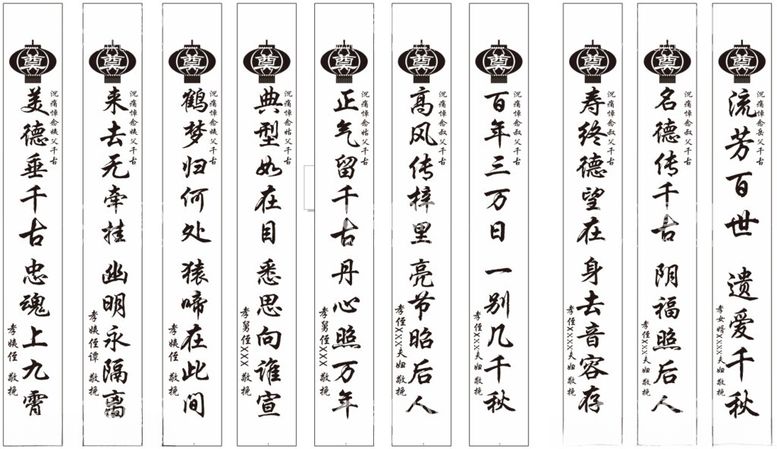 奠
沉痛悼念岳父千古
流芳百世 遗爱千秋
孝女婿XXX夫妇 敬挽
奠
沉痛悼念叔父千古
名德传千古 阴福照后人
孝侄XXX夫妇 敬挽
奠
沉痛悼念叔父千古
寿终德望在 身去音容存
孝侄XXX夫妇 敬挽
奠
沉痛悼念叔父千古
百年三万日 一别几千秋
孝侄XXX夫妇 敬挽
奠
沉痛悼念叔父千古
高风传梓里 亮节昭后人
孝侄XXX夫妇 敬挽
奠
沉痛悼念姑父千古
正气留千古 丹心照万年
孝舅侄XXX 敬挽
奠
沉痛悼念姑父千古
典型如在目 悉思向谁宣
孝舅侄XXX 敬挽
奠
沉痛悼念姨父千古
鹤梦归何处 猿啼在此间
孝姨侄谭 敬挽
奠
沉痛悼念姨父千古
来去无牵挂 幽明永隔离
孝姨侄谭 敬挽
奠
沉痛悼念姨父千古
美德垂千古 忠魂上九霄
孝姨侄 敬挽